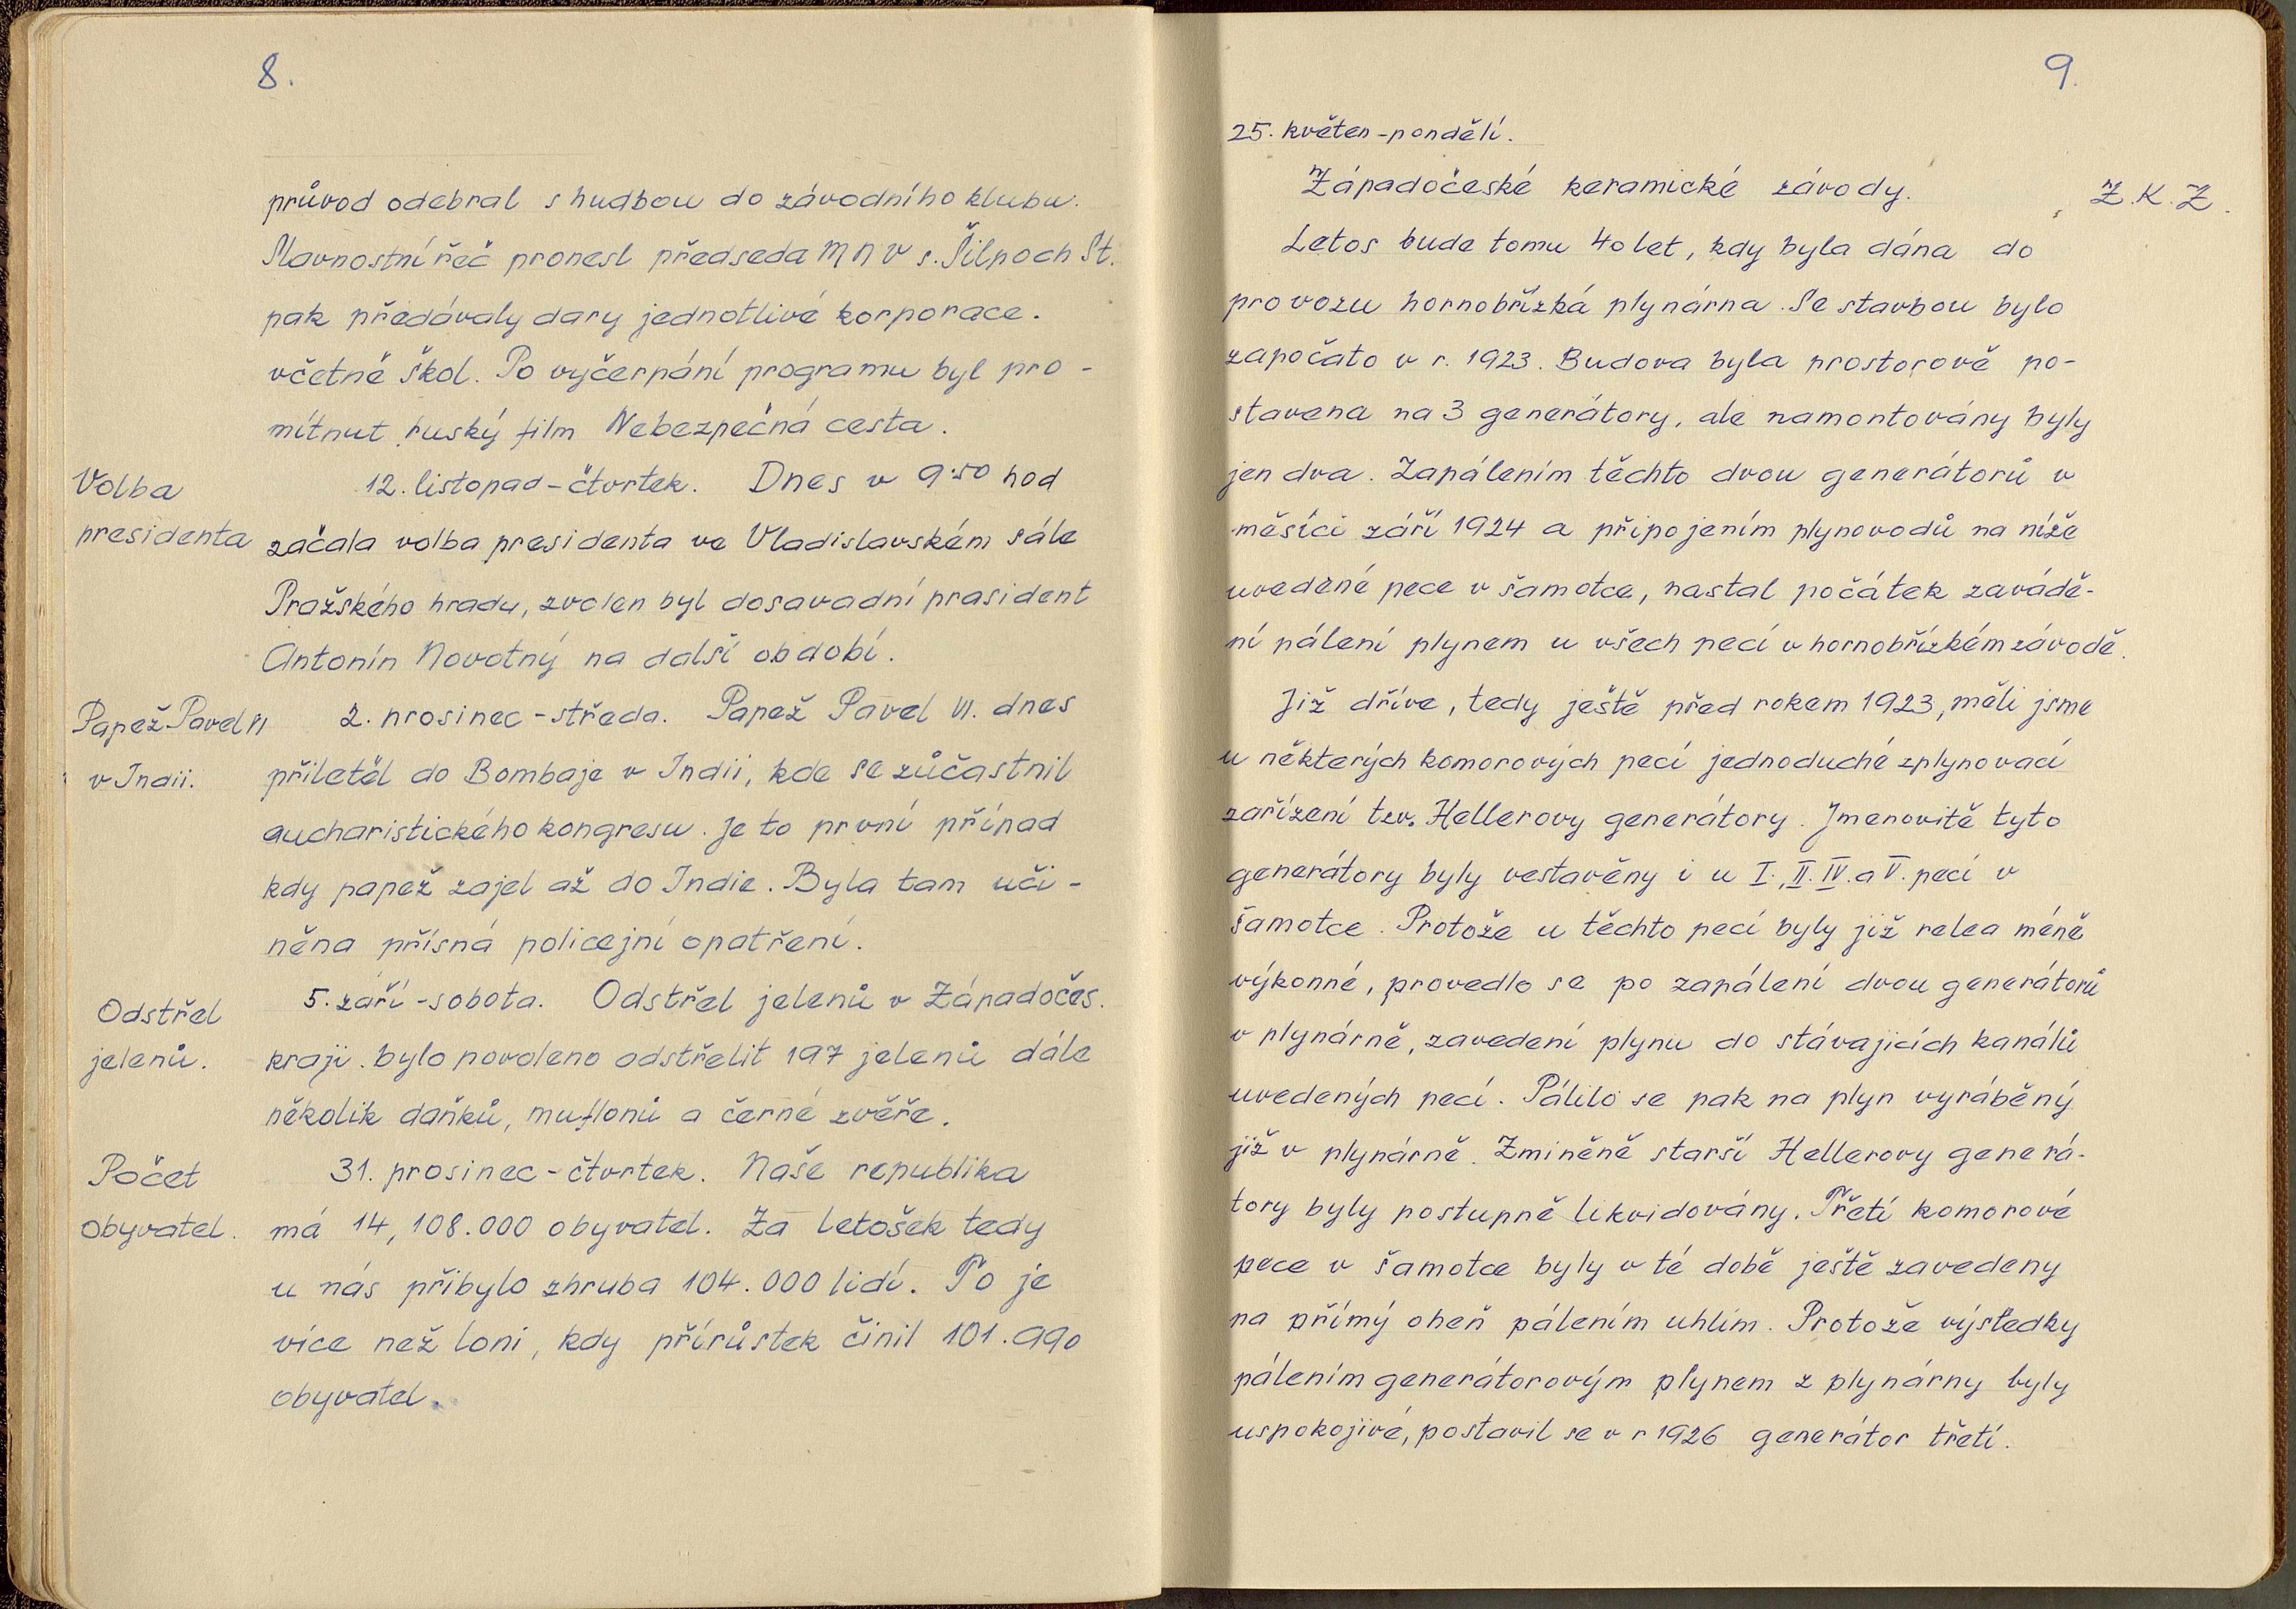 8.
průvod odebral s hudbou do závodního klubu.
Slavnostní řeč pronesl předseda MNV s. Šilpoch St.
pak předávaly dary jednotlivé korporace.
včetně škol. Po vyčerpání programu byl pro-
mítnut ruský film Nebezpečná cesta.
Volba
presidenta
12. listopad - čtvrtek. Dnes v 9:50 hod
začala volba presidenta ve Vladislavském sále
Pražského hradu, zvolen byl dosavadní prasident
Antonín Novotný na další období.
Papež Pavel VI
v Indii.
2. prosinec - středa. Papež Pavel VI. dnes
přiletěl do Bombaje v Indii, kde se zůčastnil
eucharistického kongresu. Je to první případ
kdy papež zajel až do Indie. Byla tam uči-
něna přísná policejní opatření.
Odstřel
jelenů.
5. září - sobota. Odstřel jelenů v Západočes.
kraji. bylo povoleno odstřelit 197 jelenů dále
několik daňků, muflonů a černé zvěře.
Počet
obyvatel.
31. prosinec - čtvrtek. Naše republika
má 14,108.000 obyvatel. Za letošek tedy
u nás přibylo zhruba 104.000 lidí. To je
více než loni, kdy přírůstek činil 101.990
obyvatel.
9.
25. květen - pondělí.
Západočeské keramické závody.
Z.K.Z.
Letos bude tomu 40 let, kdy byla dána do
provozu hornobřízká plynárna. Se stavbou bylo
započato v r. 1923. Budova byla prostorově po-
stavena na 3 generátory, ale namontovány byly
jen dva. Zapálením těchto dvou generátorů v
měsíci září 1924 a připojením plynovodů na níže
uvedené pece v šamotce, nastal počátek zavádě-
ní pálení plynem u všech pecí v hornobřízkém závodě.
Již dříve, tedy ještě před rokem 1923, měli jsme
u některých komorových pecí jednoduché zplynovací
zařízení tzv. Hellerovy generátory. Jmenovitě tyto
generátory byly vestavěny i u I., II. IV. a V. pecí v
šamotce. Protože u těchto pecí byly již relea méně
výkonné, provedlo se po zapálení dvou generátorů
v plynárně, zavedení plynu do stávajicích kanálů
uvedených pecí. Pálilo se pak na plyn vyráběný
již v plynárně. Zmíněně starší Hellerovy generá-
tory byly postupně likvidovány. Třetí komorové
pece v šamotce byly v té době ještě zavedeny
na přímý oheň pálením uhlím. Protože výsledky
pálením generátorovým plynem z plynárny byly
uspokojivé, postavil se v r 1926 generátor třetí.